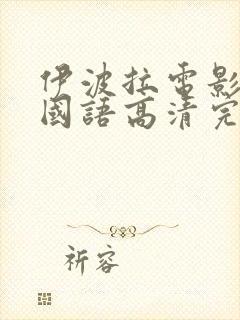 伊波拉電影
國語高清完
祈容